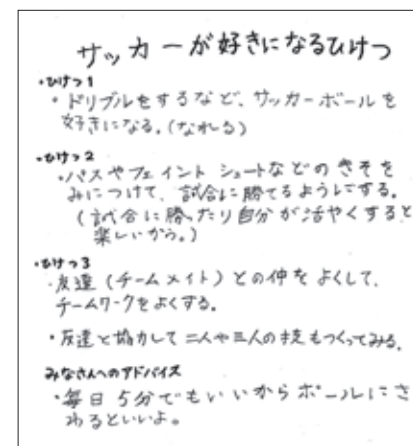 サッカーが好きになるひけつ
・ひけつ1
・ドリブルをするなど、サッカーボールを
好きになる。(なれる)
・ひけつ2
・パスやフェイント シュートなどの きそを
みにつけて、試合に勝てるようにする。
(試合に勝ったり自分が活やくすると
楽しいから。)
・ひけつ3
・友達(チームメイト)との仲をよくして、
チームワークをよくする。
・友達と協力して二人や三人の技もつくってみる。
みなさんへのアドバイス
・毎日5分でもいいからボールにさ
わるといいよ。